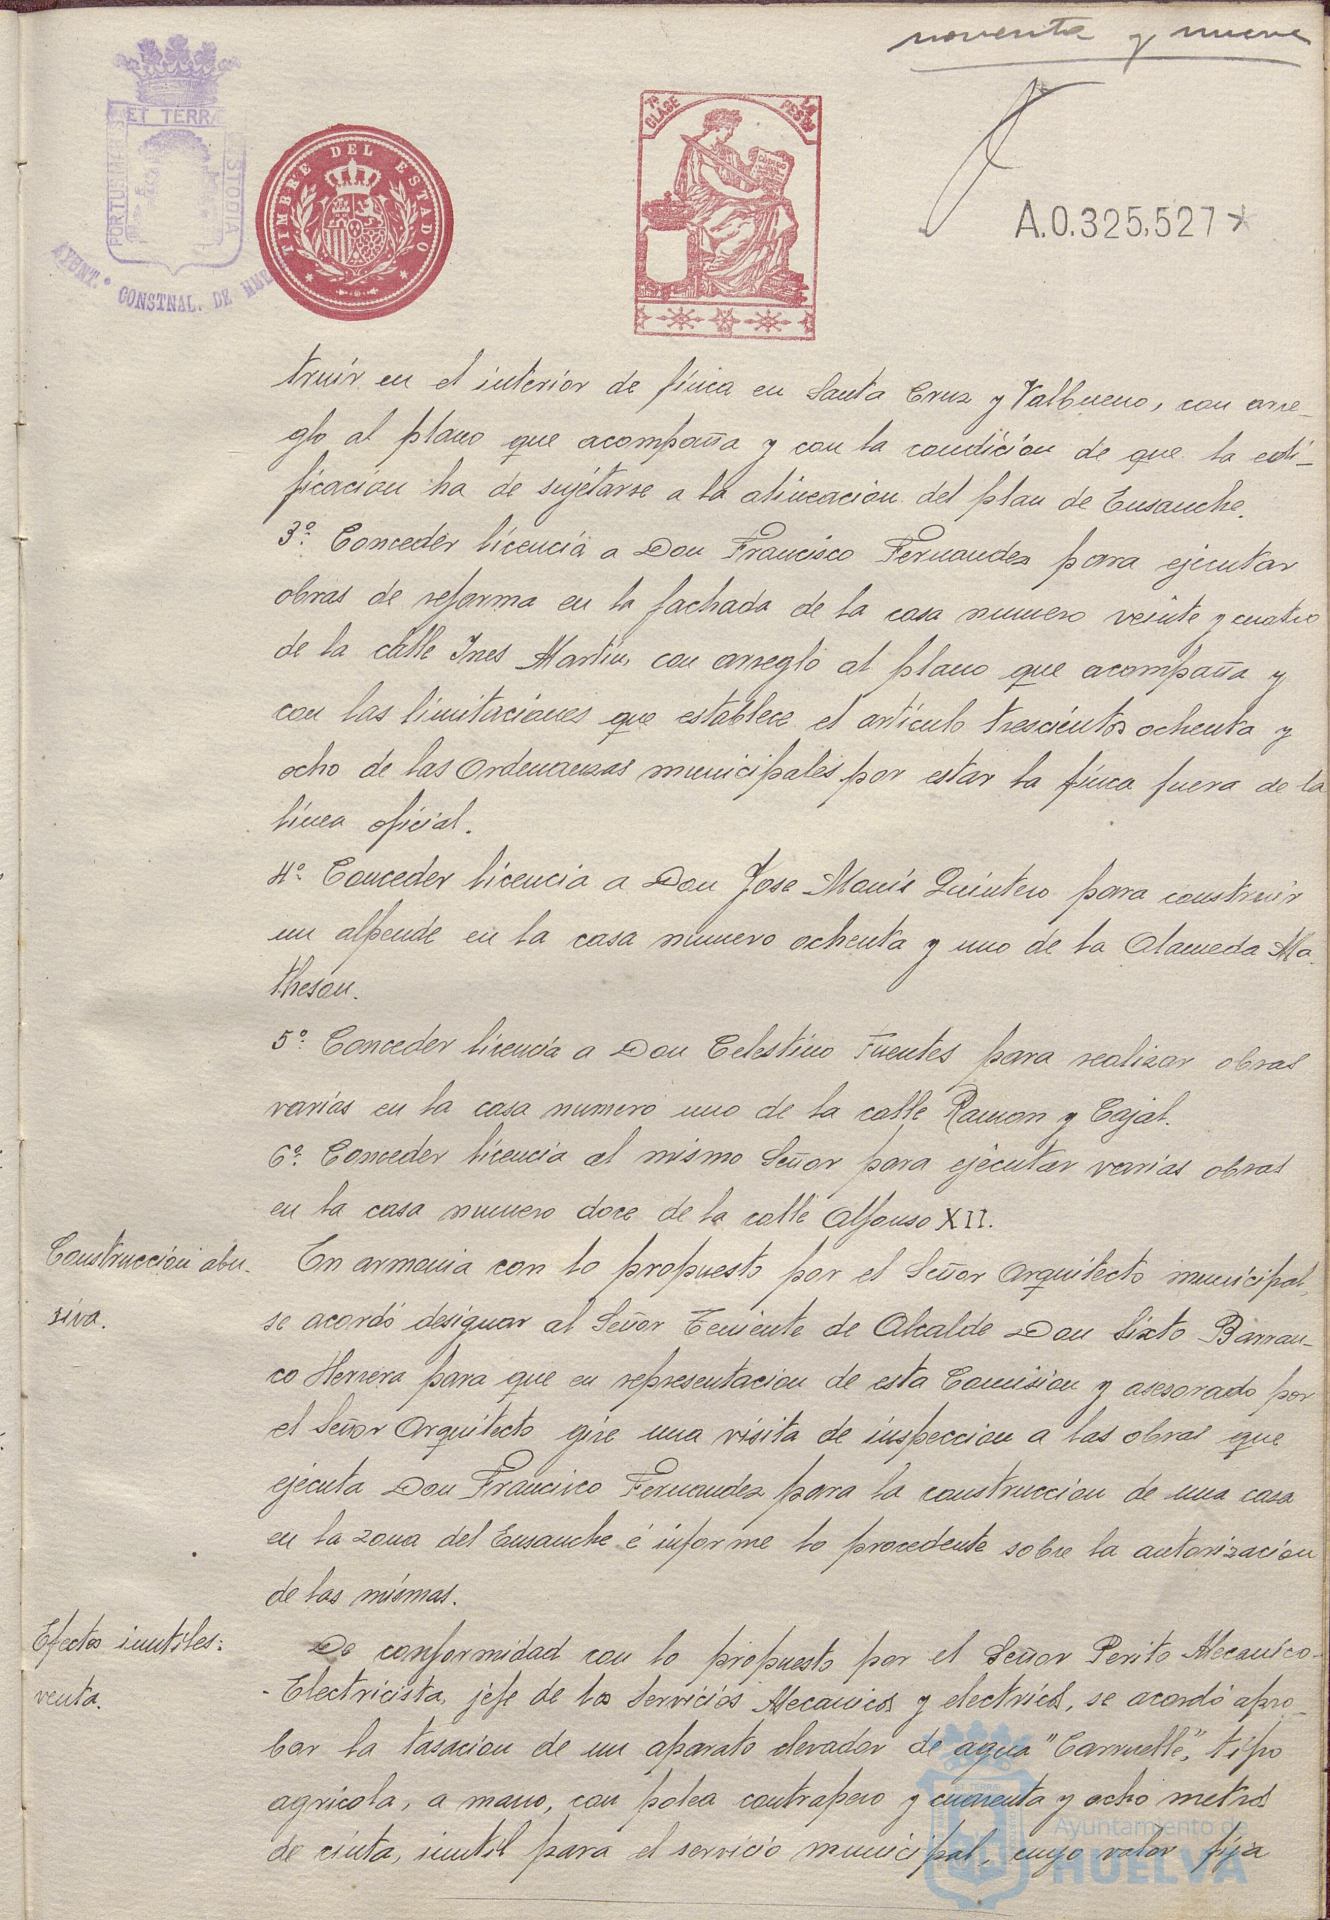 noventa y nueve
ET TERRÆ
PORTUS MARIS
CUSTODIA
AYUNT.º CONSTNAL. DE
TIMBRE DEL ESTADO
7ª CLASE
PESETAS
A.0.325,527
truir en el interior de finca en Santa Cruz y Valbueno, con arre-
glo al plano que acompaña y con la condición de que la edi-
ficación ha de sujetarse a la alineación del plan de Ensanche.
3º. Conceder licencia a Don Francisco Fernandez para ejecutar
obras de reforma en la fachada de la casa numero veinte y cuatro
de la calle Ines Martin, con arreglo al plano que acompaña y
con las limitaciones que establece el artículo trescientos ochenta y
ocho de las Ordenanzas municipales por estar la finca fuera de la
línea oficial.
4º. Conceder licencia a Don Jose María Quintero para construir
un alpende en la casa numero ochenta y uno de la Alameda Ma-
theson.
5º. Conceder licencia a Don Celestino Fuentes para realizar obras
varias en la casa numero uno de la calle Ramon y Cajal.
6º. Conceder licencia al mismo Señor para ejecutar varias obras
en la casa numero doce de la calle Alfonso XII.
Construcción abu-
siva.
En armonia con lo propuesto por el Señor Arquitecto municipal,
se acordó designar al Señor Teniente de Alcalde Don Sixto Barran-
co Herrera para que en representacion de esta Comision y asesorado por
el Señor Arquitecto gire una visita de inspeccion a las obras que
ejecuta Don Francisco Fernandez para la construccion de una casa
en la zona del Ensanche é informe lo procedente sobre la autorizacion
de las mismas.
Efectos inutiles:
venta.
De conformidad con lo propuesto por el Señor Perito Mecanico-
-Electricista, jefe de los Servicios Mecanicos y electricos, se acordó apro-
bar la tasacion de un aparato elevador de agua "Carruelle", tipo
agricola, a mano, con polea contrapeso y cuarenta y ocho metros
de cinta, inutil para el servicio municipal, cuyo valor fija
ET TERRÆ
Ayuntamiento de
HUELVA